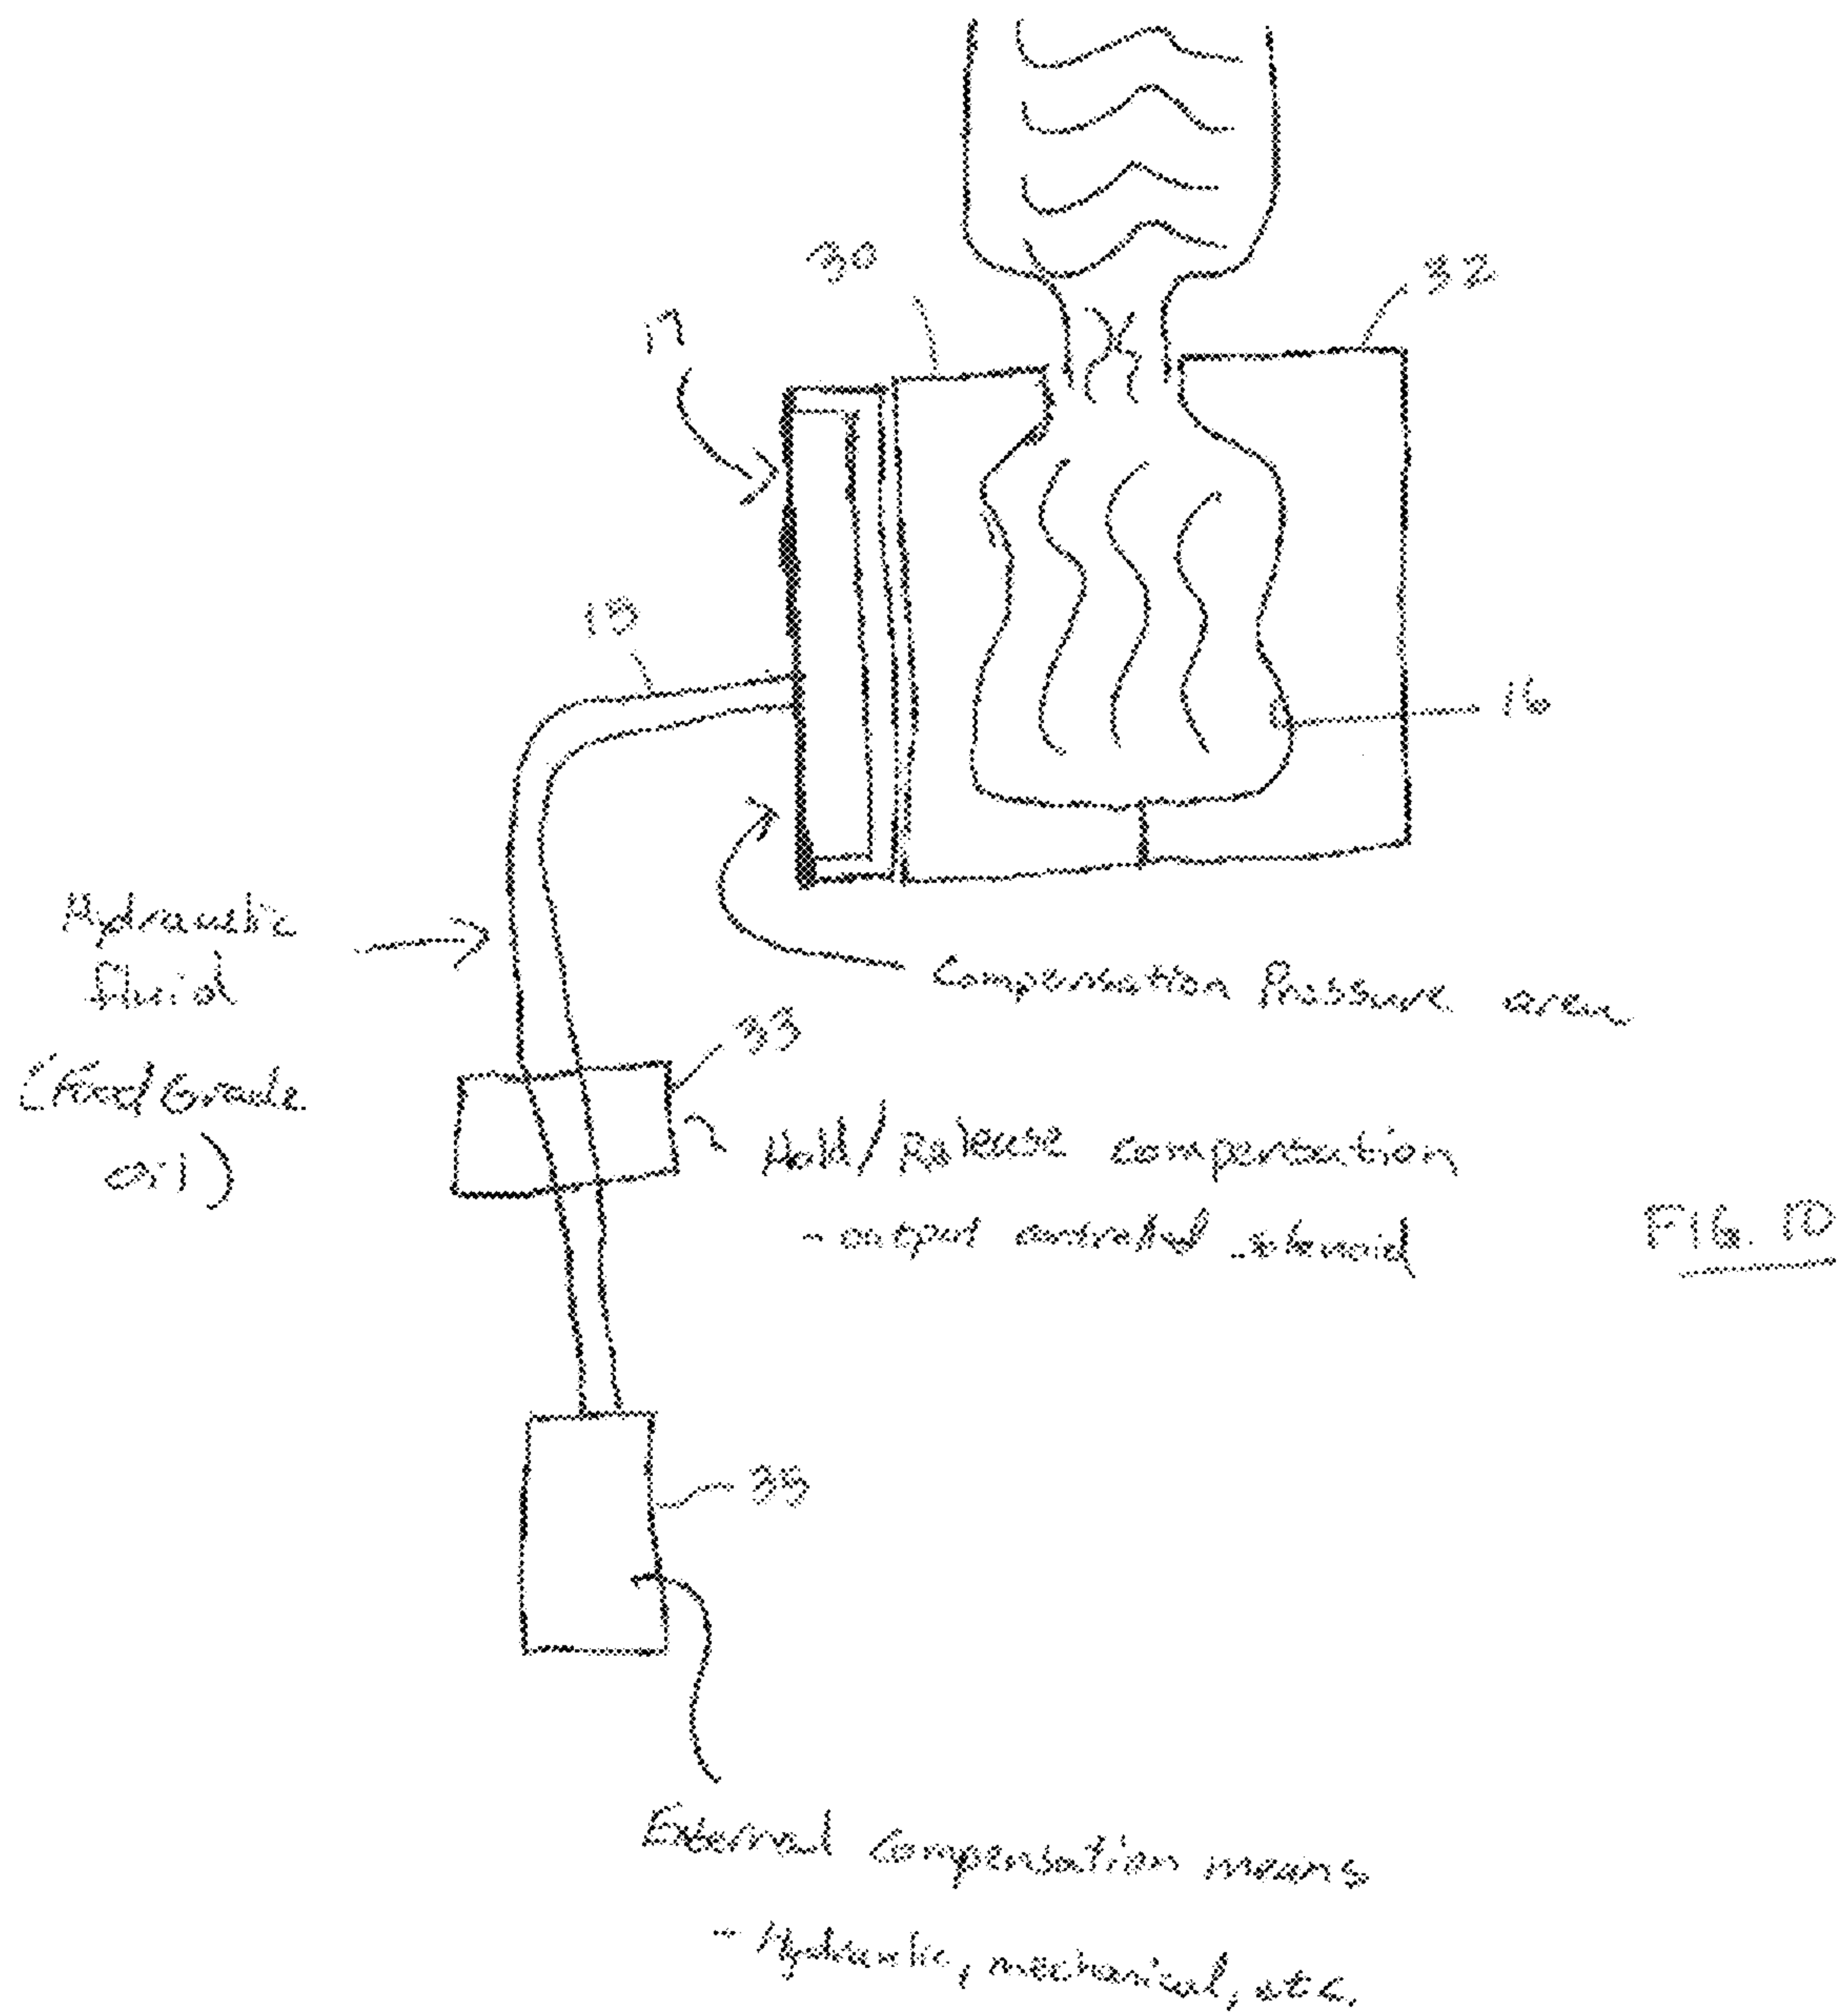 30
32
17
19
16
Hydraulic
fluid
(Food Grade
oil)
Compensation Pressure area
33
Hold/Release compensation
- output controlled solenoid
FIG. 10
35
External Compensation means
- Hydraulic, mechanical, etc.